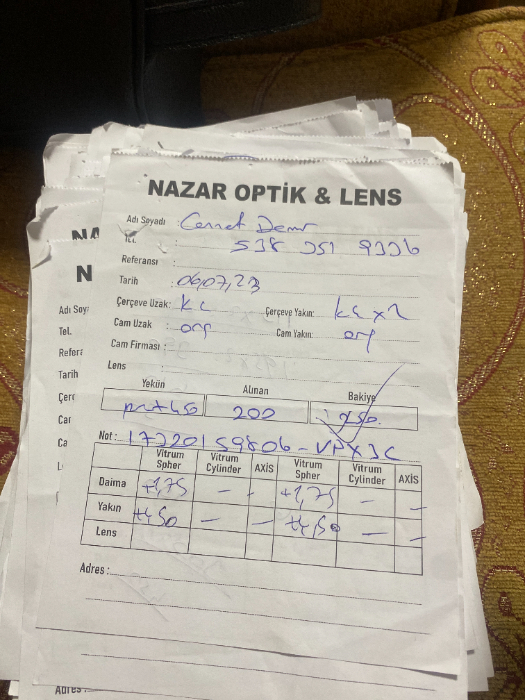 NAZAR OPTİK & LENS
Adı Soyadı : Cennet Demir
TEL :
Referansı :
Tarih : 06,07,23
Çerçeve Uzak: Kc Çerçeve Yakın: kc x2
Cam Uzak : org Cam Yakın: org
Cam Firması :
Lens
Yekün Alınan Bakiye
450 200 250
Not:
Vitrum Spher Vitrum Cylinder AXİS Vitrum Spher Vitrum Cylinder AXİS
Daima +1,75 — - +1,75 — —
Yakın +4,50 — — +4,50 — —
Lens
Adres :
NA
N
Adı Soy
Tel.
Refer
Tarih
Çerç
Ca
Adres